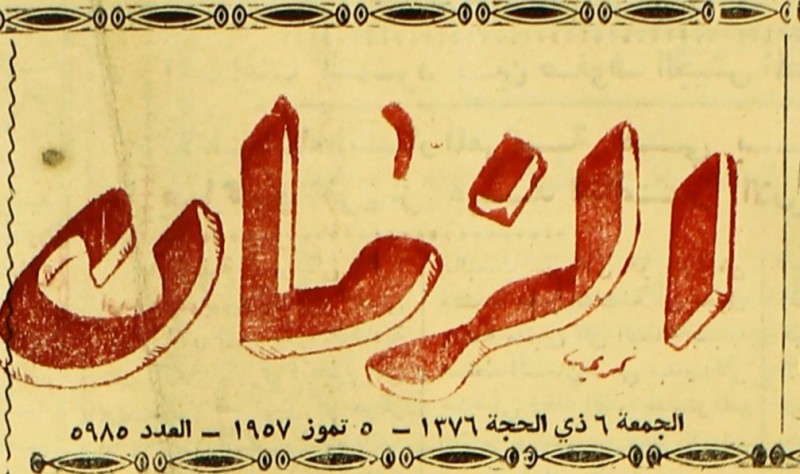 الزمان
الجمعة ٦ ذي الحجة ١٣٧٦ – ٥ تموز ١٩٥٧ – العدد ٥٩٨٥